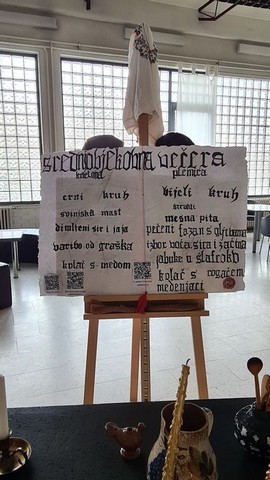 srednovjekovna večera
kmetova
plemića
crni kruh
svinjska mast
dimljeni sir i jaja
varivo od graška
kolač s medom
bijeli kruh
mesna pita
pečeni fazan s gljivama
izbor voća, sira i začina
jabuke u šlafroku
kolač s rogačem
medenjaci